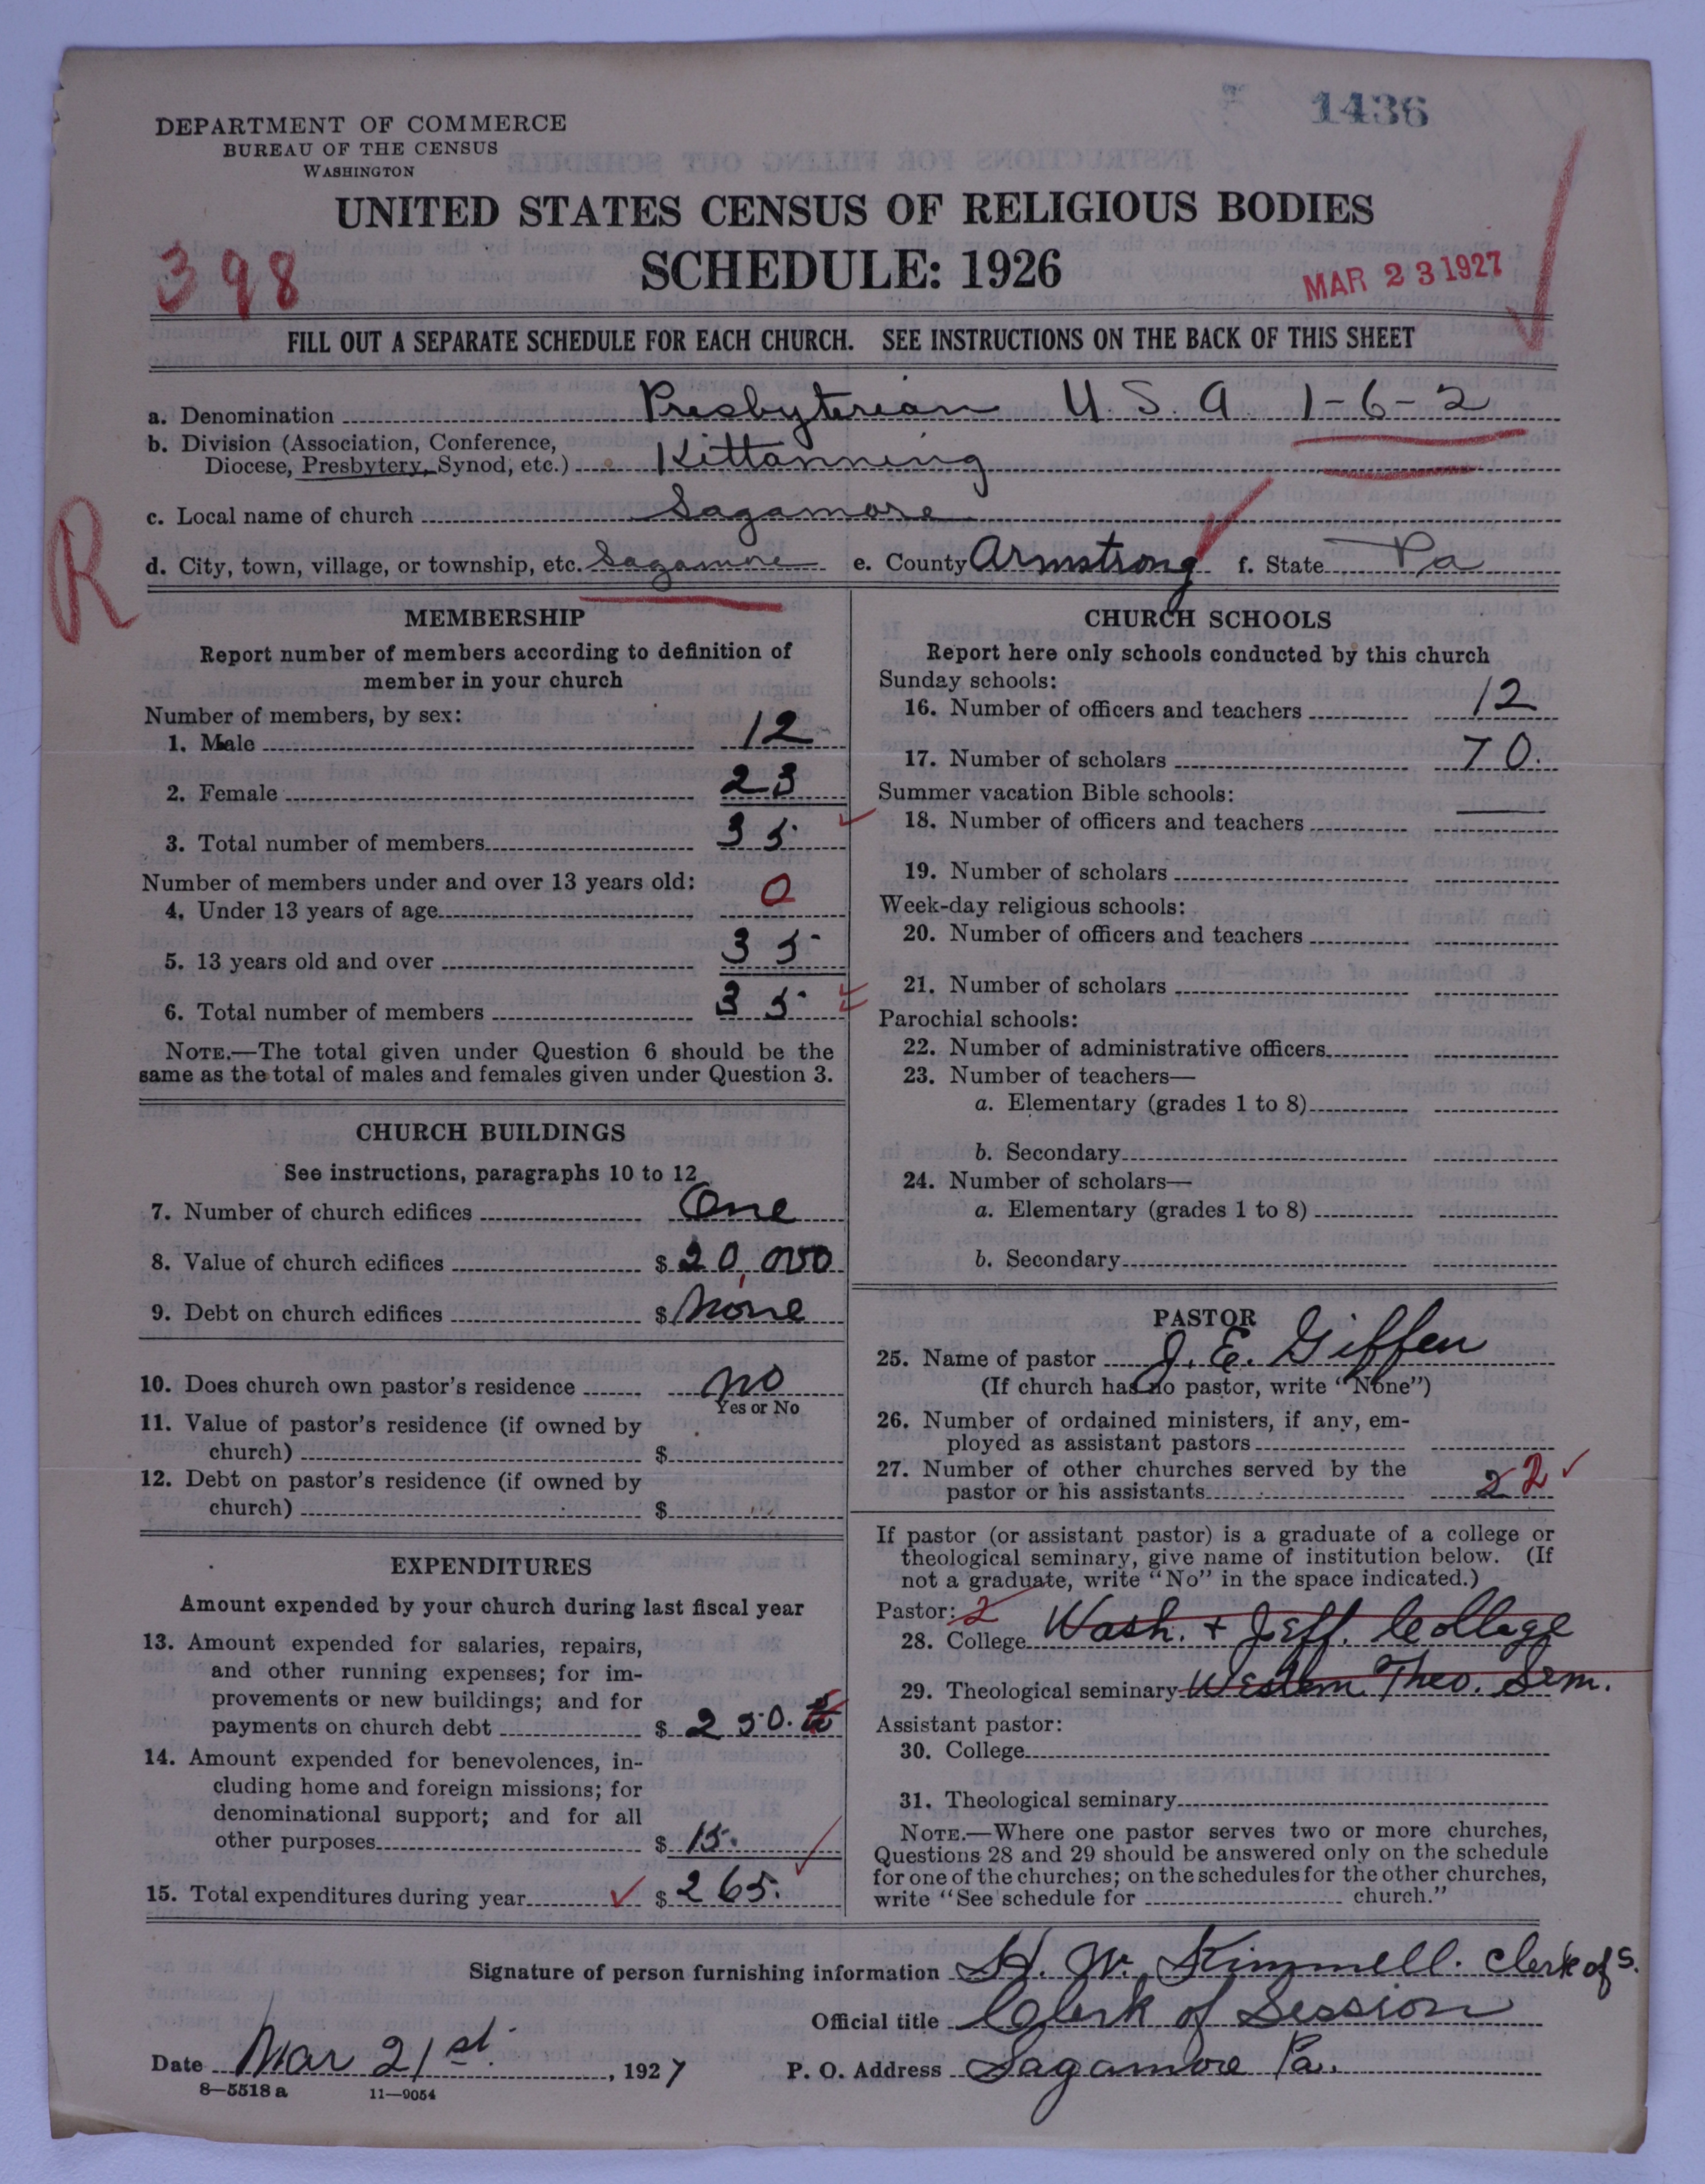 1436
DEPARTMENT OF COMMERCE
BUREAU OF THE CENSUS
WASHINGTON
UNITED STATES CENSUS OF RELIGIOUS BODIES
SCHEDULE: 1926
398
MAR 23 1927
FILL OUT A SEPARATE SCHEDULE FOR EACH CHURCH. SEE INSTRUCTIONS ON THE BACK OF THIS SHEET
a. Denomination Presbyterian U.S.A 1-6-2
b. Division (Association, Conference,
Diocese, Presbytery, Synod, etc.) Kittanning
c. Local name of church Sagamore
R
d. City, town, village, or township, etc. Sagamore e. County Armstrong f. State Pa
MEMBERSHIP
Report number of members according to definition of
member in your church
Number of members, by sex:
1. Male 12
2. Female 23
3. Total number of members 35
Number of members under and over 13 years old:
4. Under 13 years of age 0
5. 13 years old and over 35
6. Total number of members 35
NOTE.—The total given under Question 6 should be the
same as the total of males and females given under Question 3.
CHURCH BUILDINGS
See instructions, paragraphs 10 to 12
7. Number of church edifices One
8. Value of church edifices $ 20,000
9. Debt on church edifices $ None
10. Does church own pastor's residence no
Yes or No
11. Value of pastor's residence (if owned by
church) $
12. Debt on pastor's residence (if owned by
church) $
EXPENDITURES
Amount expended by your church during last fiscal year
13. Amount expended for salaries, repairs,
and other running expenses; for im-
provements or new buildings; and for
payments on church debt $ 250.
14. Amount expended for benevolences, in-
cluding home and foreign missions; for
denominational support; and for all
other purposes $ 15.
15. Total expenditures during year $ 265.
CHURCH SCHOOLS
Report here only schools conducted by this church
Sunday schools:
16. Number of officers and teachers 12
17. Number of scholars 70.
Summer vacation Bible schools:
18. Number of officers and teachers —
19. Number of scholars
Week-day religious schools:
20. Number of officers and teachers
21. Number of scholars
Parochial schools:
22. Number of administrative officers
23. Number of teachers—
a. Elementary (grades 1 to 8)
b. Secondary
24. Number of scholars—
a. Elementary (grades 1 to 8)
b. Secondary
PASTOR
25. Name of pastor J. E. Giffen
(If church has no pastor, write "None")
26. Number of ordained ministers, if any, em-
ployed as assistant pastors
27. Number of other churches served by the
pastor or his assistants 2 2
If pastor (or assistant pastor) is a graduate of a college or
theological seminary, give name of institution below. (If
not a graduate, write "No" in the space indicated.)
Pastor: 2
28. College Wash. + Jeff. College
29. Theological seminary Western Theo. Sem.
Assistant pastor:
30. College
31. Theological seminary
NOTE.—Where one pastor serves two or more churches,
Questions 28 and 29 should be answered only on the schedule
for one of the churches; on the schedules for the other churches,
write "See schedule for church."
Signature of person furnishing information H. W. Kimmell. Clerk of S.
Official title Clerk of Session
Date Mar 21st, 1927 P. O. Address Sagamore Pa.
8—5518 a 11—9054